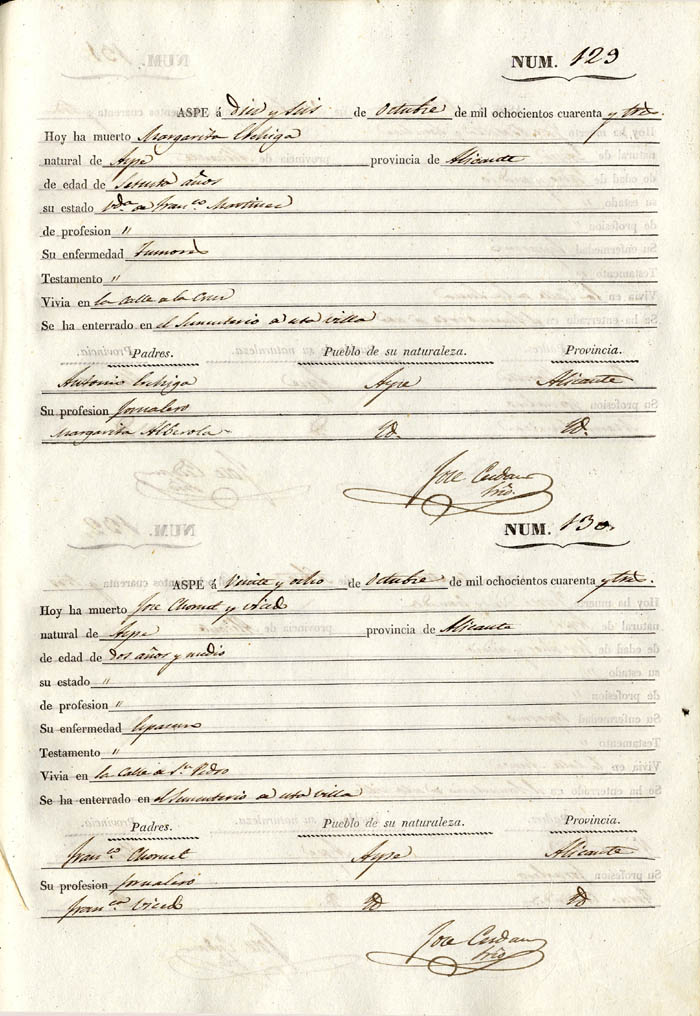 NUM. 129
ASPE á Diez y seis de Octubre de mil ochocientos cuarenta y tres.
Hoy ha muerto Margarita
natural de Aspe provincia de Alicante
de edad de Setenta años
su estado Vda. de Franco. Martinez
de profesion "
Su enfermedad Tumores
Testamento "
Vivia en la Calle de la Cruz
Se ha enterrado en el Sementerio de esta villa
Padres. Pueblo de su naturaleza. Provincia.
Antonio Aspe Alicante
Su profesion Jornalero
Margarita Alberola Id. Id.
Jose Cerdan
NUM. 130
ASPE á Veinte y ocho de Octubre de mil ochocientos cuarenta y tres.
Hoy ha muerto Jose Chornet y Viced
natural de Aspe provincia de Alicante
de edad de dos años y medio
su estado "
de profesion "
Su enfermedad
Testamento "
Vivia en la Calle de Sn. Pedro
Se ha enterrado en el Sementerio de esta villa
Padres. Pueblo de su naturaleza. Provincia.
Franco. Chornet Aspe Alicante
Su profesion Jornalero
Franca. Viced Id Id
Jose Cerdan